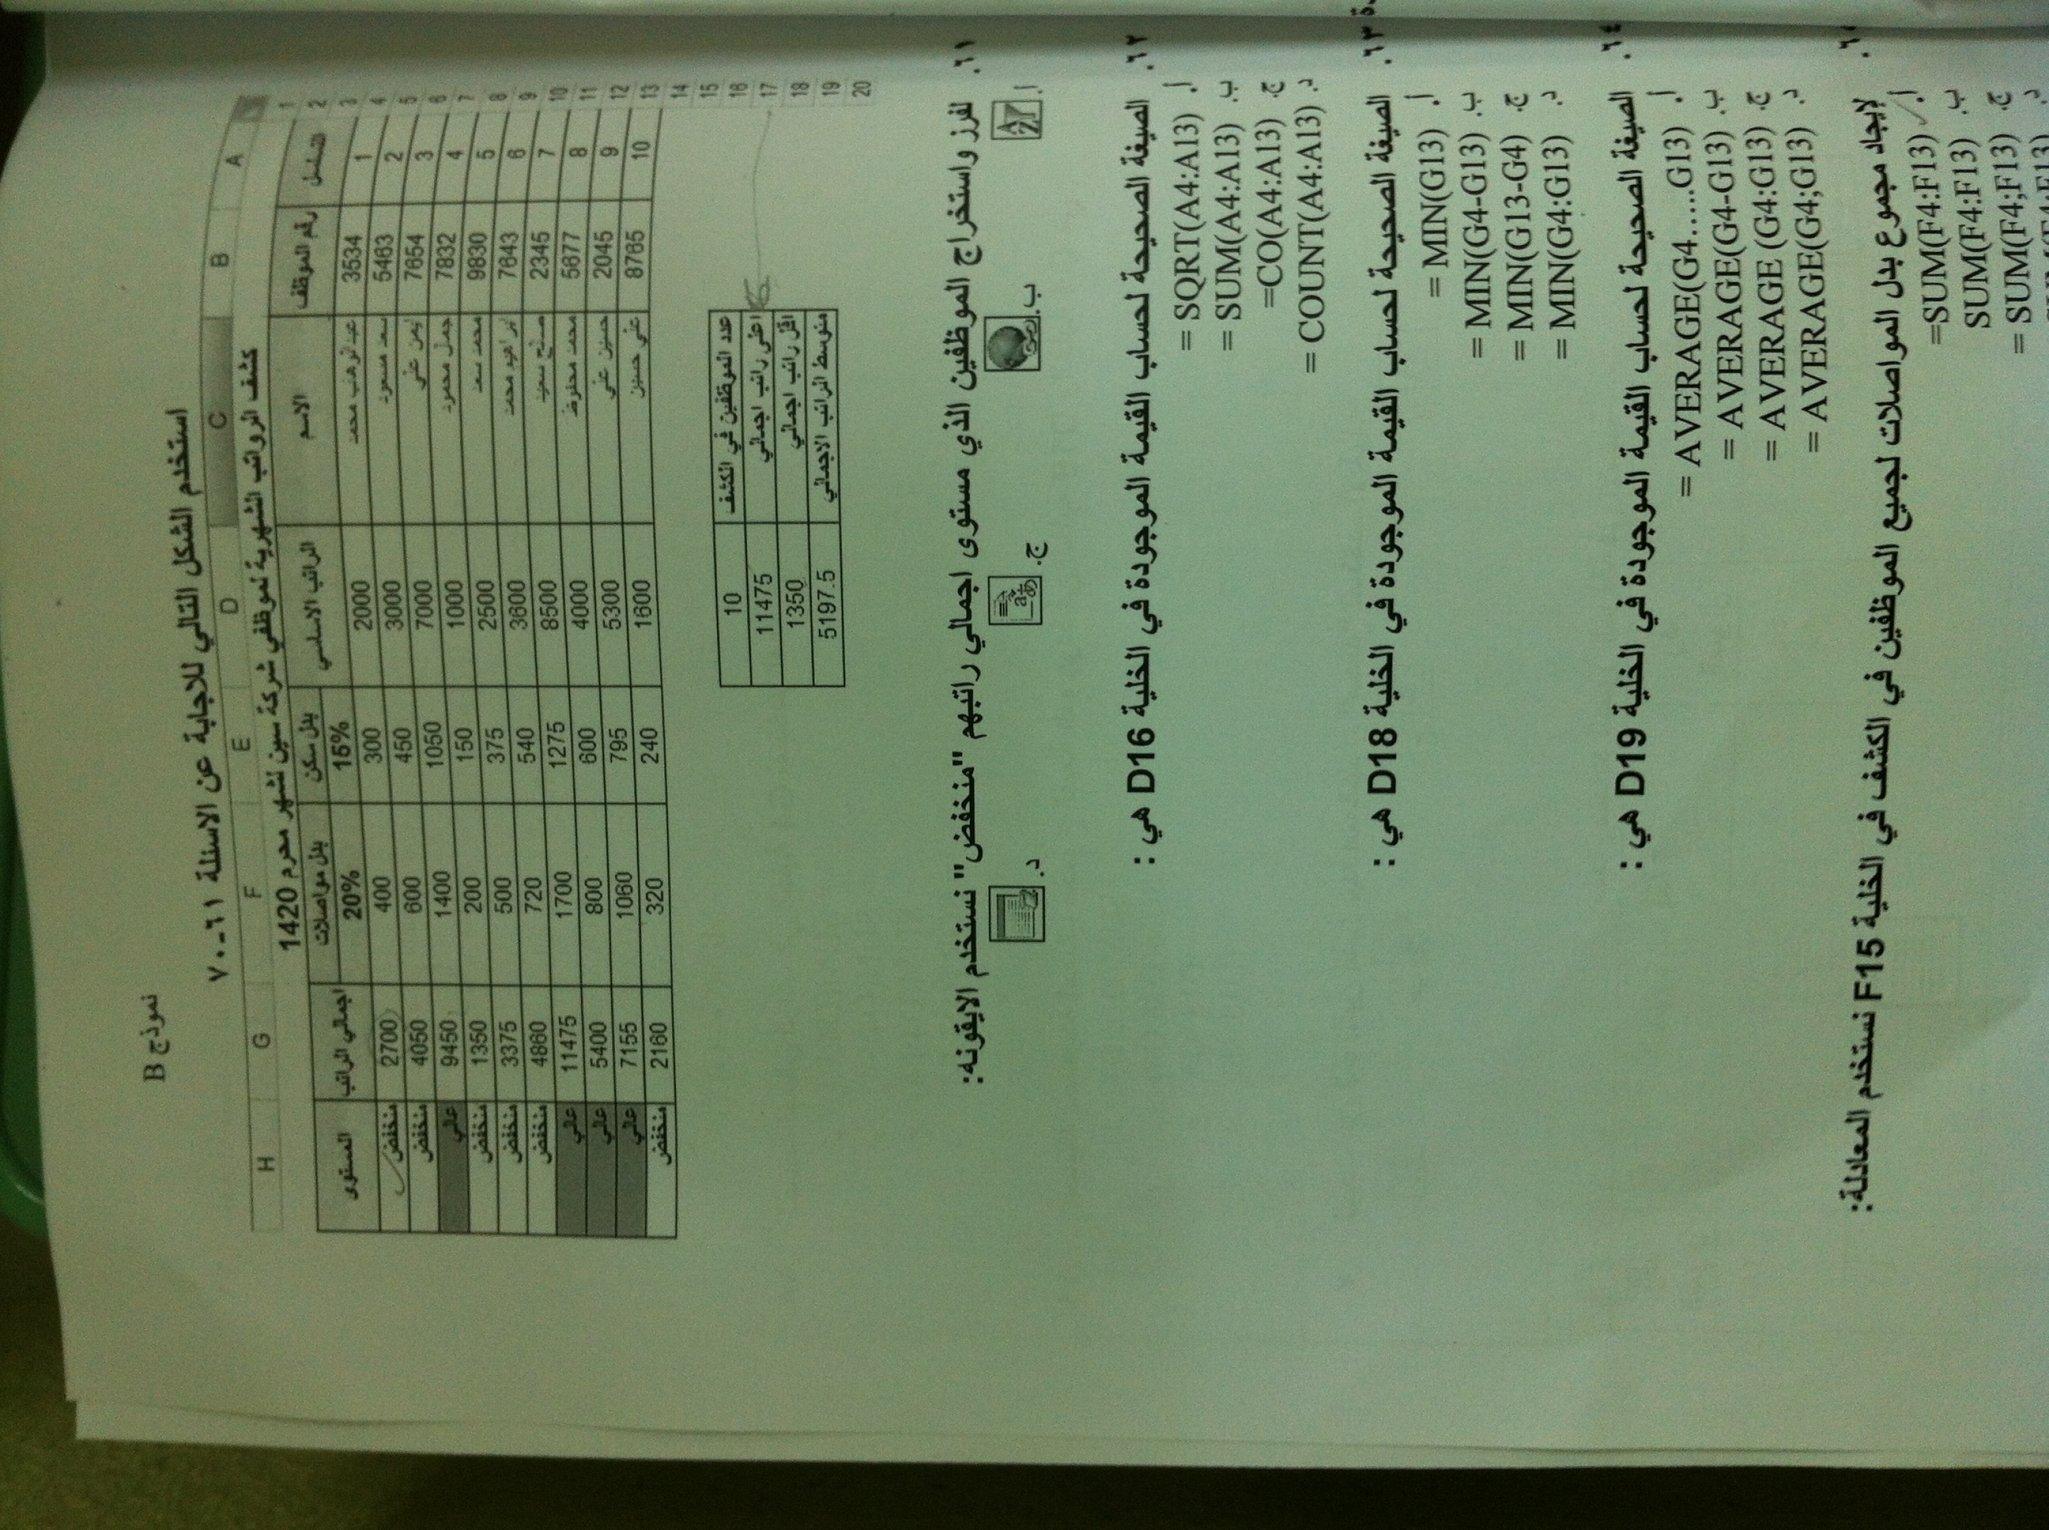 نموذج B
استخدم الشكل التالي للاجابة عن الاسئلة ٦١-٧٠
A B C D E F G H
1 كشف الرواتب الشهرية لموظفي شركة سين لشهر محرم 1420
2 التسلسل رقم الموظف الاسم الراتب الاساسي بدل سكن بدل مواصلات اجمالي الراتب المستوى
3 15% 20%
4 1 3534 عبدالوهاب محمد 2000 300 400 2700 منخفض
5 2 5463 سعد مسعود 3000 450 600 4050 منخفض
6 3 7654 ايمن علي 7000 1050 1400 9450 عالي
7 4 7832 جمال محمود 1000 150 200 1350 منخفض
8 5 9830 محمد سعد 2500 375 500 3375 منخفض
9 6 7643 ابراهيم محمد 3600 540 720 4860 منخفض
10 7 2345 صالح سعيد 8500 1275 1700 11475 عالي
11 8 5677 محمد محفوظ 4000 600 800 5400 عالي
12 9 2045 حسين علي 5300 795 1060 7155 عالي
13 10 8765 علي حسين 1600 240 320 2160 منخفض
14
15
16 عدد الموظفين في الكشف 10
17 اعلى راتب اجمالي 11475
18 اقل راتب اجمالي 1350
19 متوسط الراتب الاجمالي 5197.5
20
٦١. لفرز واستخراج الموظفين الذي مستوى اجمالي راتبهم "منخفض" نستخدم الايقونه:
أ. ب. ج. د.
٦٢. الصيغة الصحيحة لحساب القيمة الموجودة في الخلية D16 هي :
أ. = SQRT(A4:A13)
ب. = SUM(A4:A13)
ج. =CO(A4:A13)
د. = COUNT(A4:A13)
٦٣. الصيغة الصحيحة لحساب القيمة الموجودة في الخلية D18 هي :
أ. = MIN(G13)
ب. = MIN(G4-G13)
ج. = MIN(G13-G4)
د. = MIN(G4:G13)
٦٤. الصيغة الصحيحة لحساب القيمة الموجودة في الخلية D19 هي :
أ. = AVERAGE(G4.....G13)
ب. = AVERAGE(G4-G13)
ج. = AVERAGE (G4:G13)
د. = AVERAGE(G4;G13)
لإيجاد مجموع بدل المواصلات لجميع الموظفين في الكشف في الخلية F15 نستخدم المعادلة:
أ. =SUM(F4:F13)
ب. SUM(F4:F13)
ج. = SUM(F4;F13)
د.